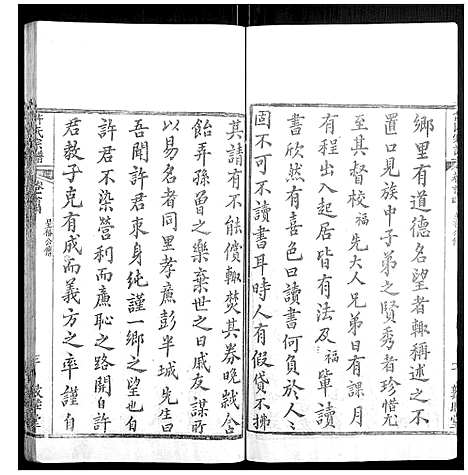 鄉里有道德名望者輒稱述之不
置口見族中子弟之賢秀者珍惜尤
至其督校福先大人兄弟日有課月
有程出入起居皆有法及福輩讀
書欣然有喜色曰讀書何負於人人
固不可不讀書耳時人有假貸不拂
其請有不能償輒焚其券晚歲含
飴弄孫魯之樂棄世之日戚友謀所
以易名者同里孝廉彭半城先生曰
吾聞許君衷身純謹一鄉之望也自
許君不染營利而廉恥之路開自許
君教子克有成而義方之率謹自
許氏宗譜
呈福公傳
敦睦堂